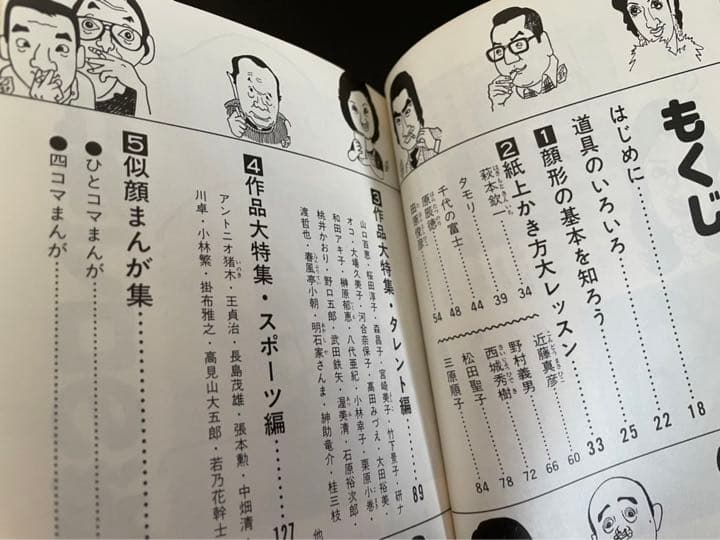 もくじ
はじめに………18
道具のいろいろ………22
1 顔形の基本を知ろう………25
2 紙上かき方大レッスン………33
萩本欽一 34
タモリ 39
千代の富士 44
原辰徳 48
田原俊彦 54
近藤真彦 60
野村義男 66
西城秀樹 72
松田聖子 78
三原順子 84
3 作品大特集・タレント編………89
山口百恵・桜田淳子・森昌子・宮崎美子・竹下景子・研ナ
オコ・大場久美子・河合奈保子・高田みづえ・太田裕美・
和田アキ子・榊原郁恵・八代亜紀・小林幸子・栗原小巻・
桃井かおり・野口五郎・武田鉄矢・渥美清・石原裕次郎・
渡哲也・春風亭小朝・明石家さんま・紳助竜介・桂三枝
他
4 作品大特集・スポーツ編………127
アントニオ猪木・王貞治・長島茂雄・張本勲・中畑清
川卓・小林繁・掛布雅之・高見山大五郎・若乃花幹士
5 似顔まんが集………
●ひとコマまんが………
●四コマまんが………